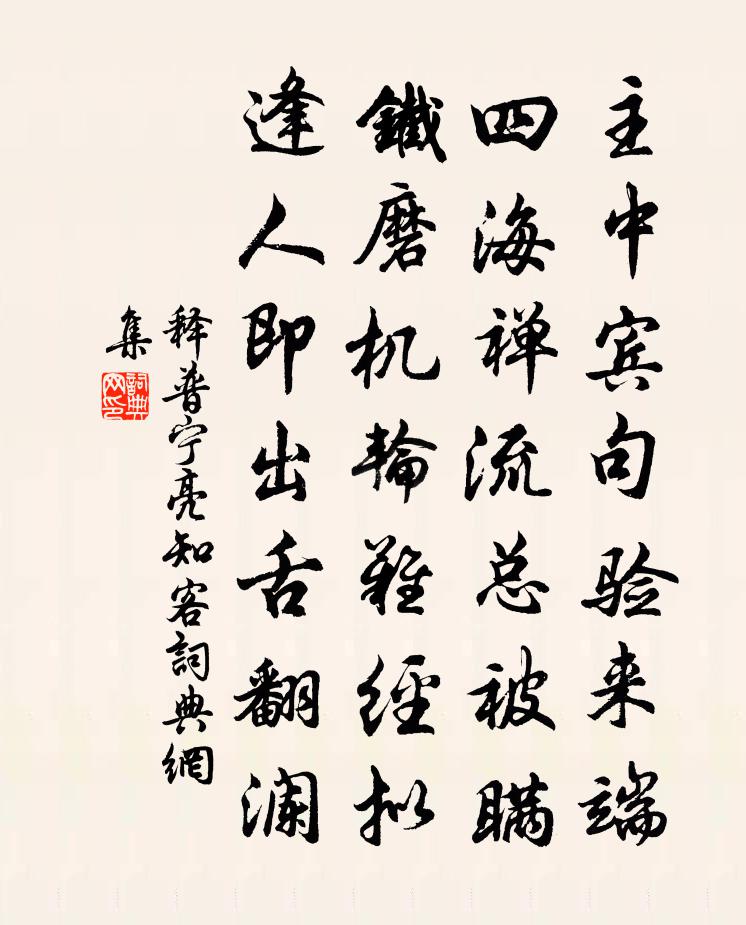 主中宾句验来端
四海禅流总被瞒
鐵磨机輪難經拟
逢人即出舌翻澜
释普宁亮知客詞典網
集
詞典
网印